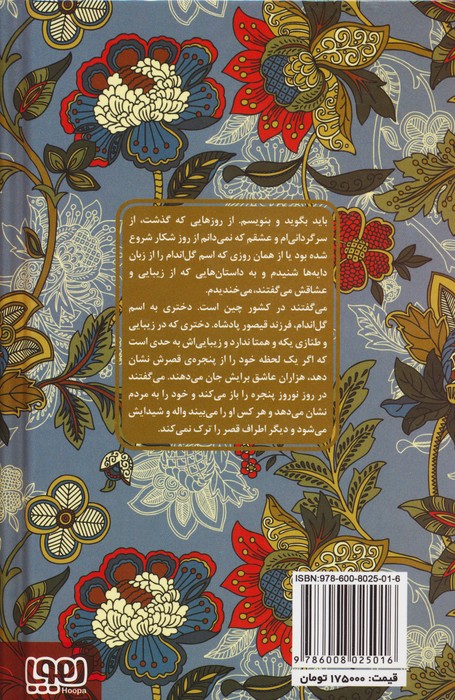 باید بگوید و بنویسم. از روزهایی که گذشت، از
سرگردانی‌ام و عشقم که نمی‌دانم از روز شکار شروع
شده بود یا از همان روزی که اسم گل‌اندام را از زبان
دایه‌ها شنیدم و به داستان‌هایی که از زیبایی و
عشاقش می‌گفتند، می‌خندیدم.
می‌گفتند در کشور چین است. دختری به اسم
گل‌اندام، فرزند قیصور پادشاه. دختری که در زیبایی
و طنازی یکه و همتا ندارد و زیبایی‌اش به حدی است
که اگر یک لحظه خود را از پنجره‌ی قصرش نشان
دهد، هزاران عاشق برایش جان می‌دهند. می‌گفتند
در روز نوروز پنجره را باز می‌کند و خود را به مردم
نشان می‌دهد و هر کس او را می‌بیند واله و شیدایش
می‌شود و دیگر اطراف قصر را ترک نمی‌کند.
ISBN:978-600-8025-01-6
9786008025016
قیمت: ۱۷۵۰۰۰ تومان
هوپا
Hoopa